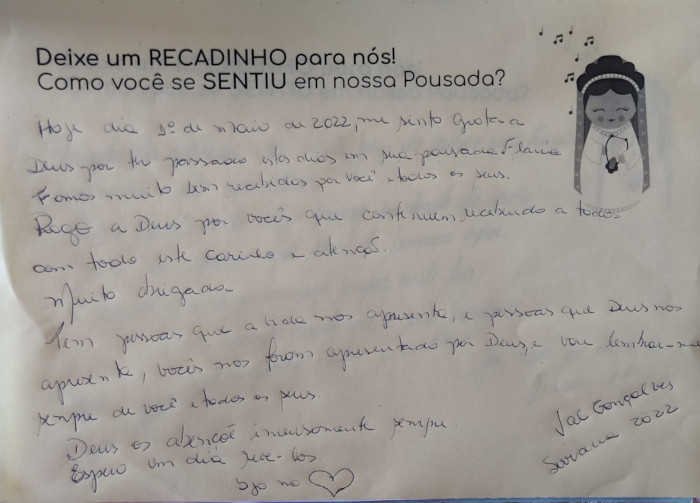 Deixe um RECADINHO para nós!
Como você se SENTIU em nossa Pousada?
Hoje dia 1º de maio de 2022, me sinto grata a
Deus por ter passado estes dias em sua pousada Flavia
Fomos muito bem recebidos por você e todos os seus.
Rogo a Deus por vocês que continuem recebendo a todos
com todo este carinho e atenção.
Muito obrigada
Tem pessoas que a vida nos apresenta, e pessoas que Deus nos
apresenta, vocês nos foram apresentado por Deus, e vou lembrar-me
sempre de você e todos os seus.
Deus os abençõe imensamente sempre.
Espero um dia reve-los
bjo no
Val Gonçalves
2022